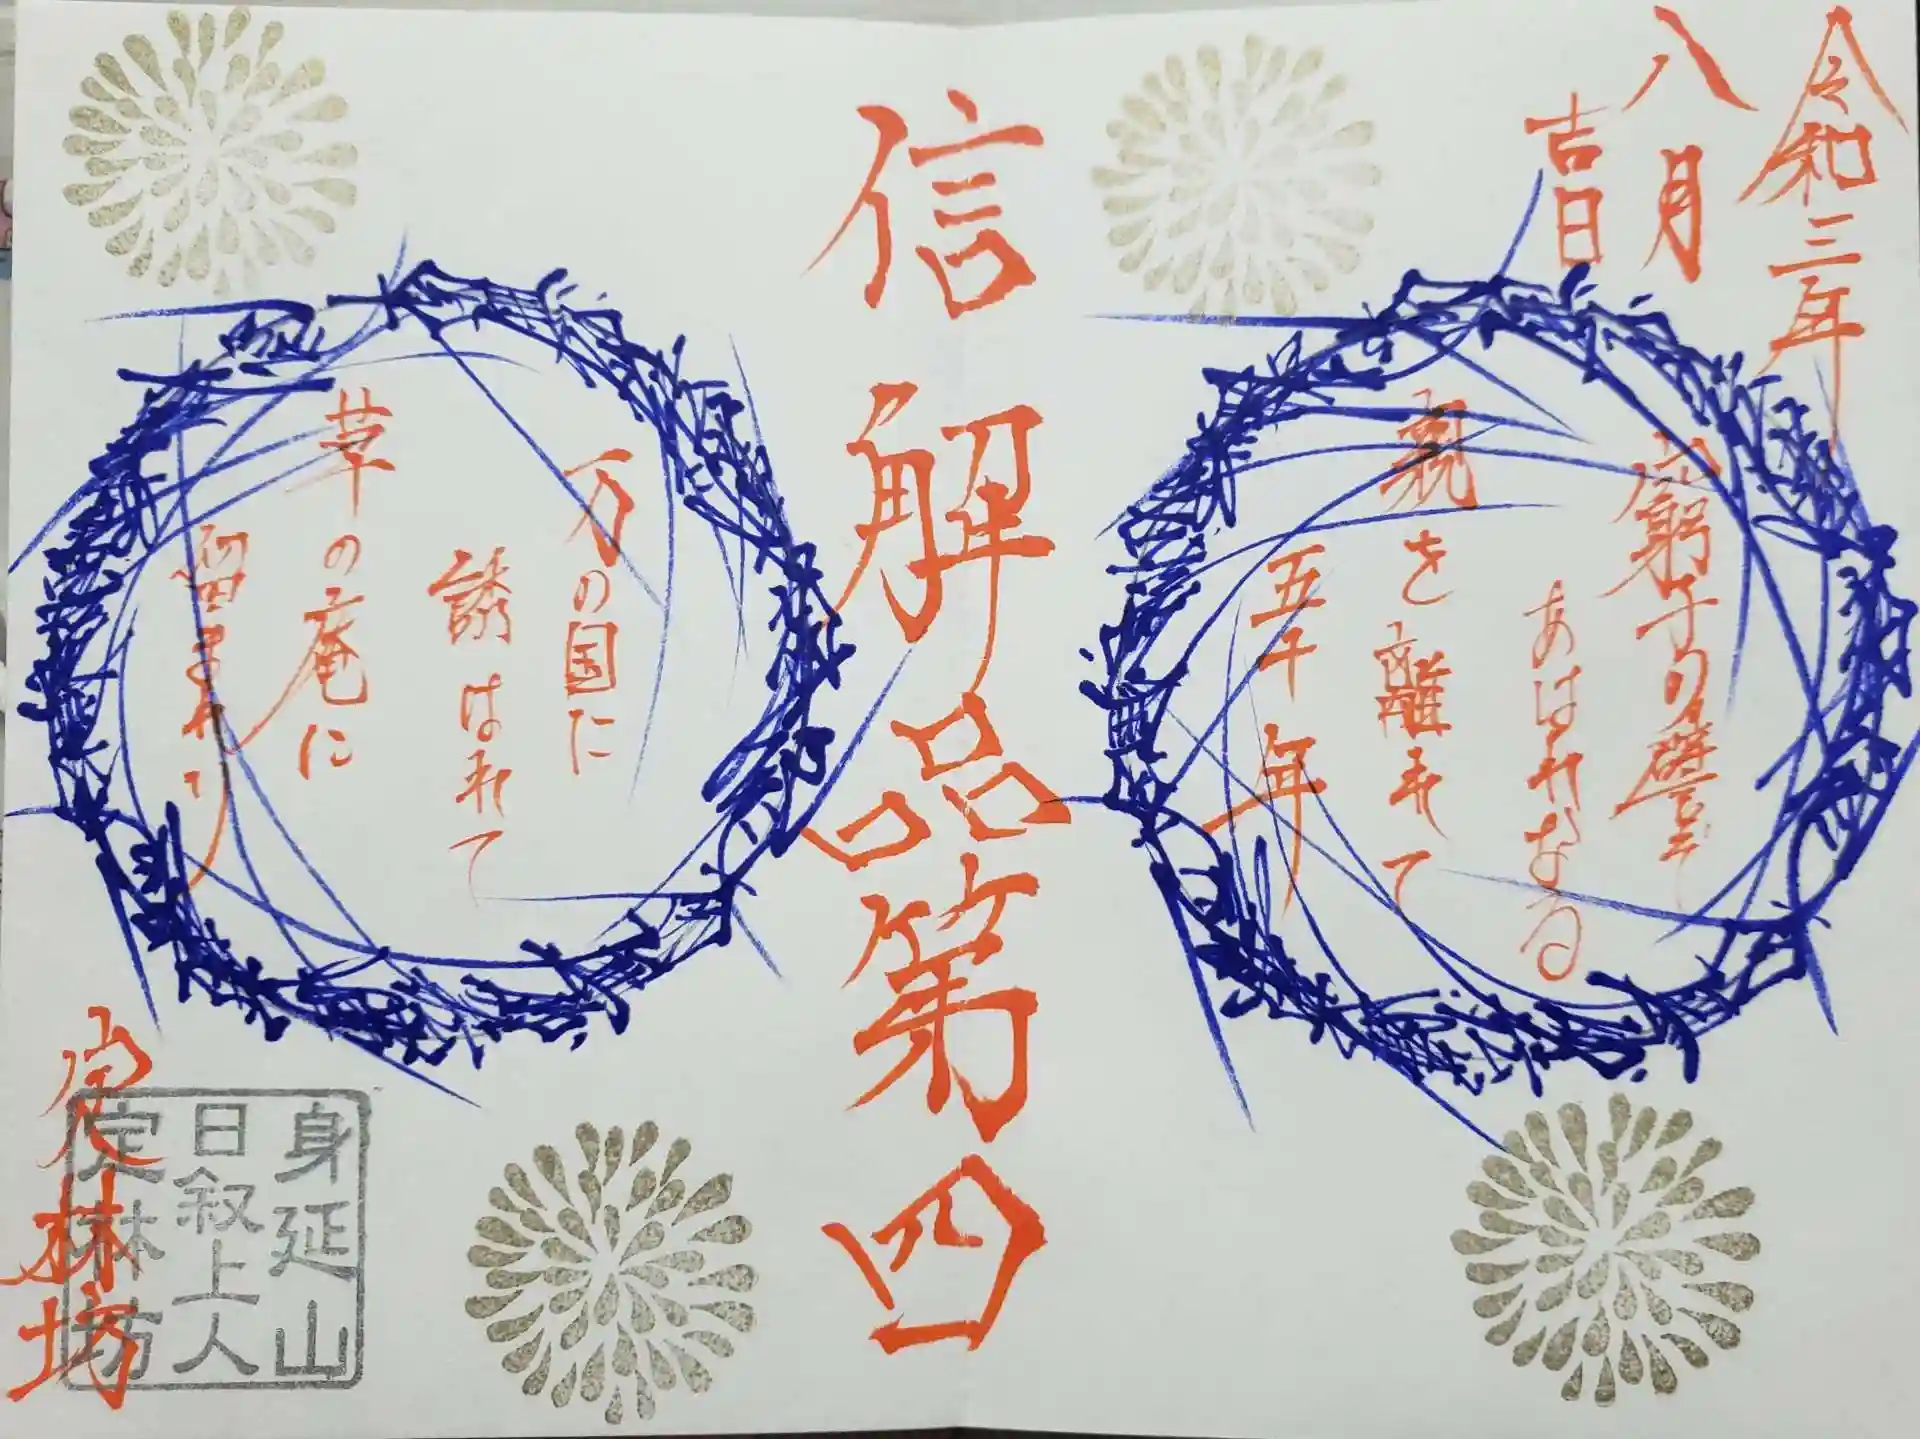 令和三年
八月
吉日
窮子の譬
あはれなる
親を離れて
五十年
信解品第四
万の国に
誘はれて
草の庵に
留まれり
定林坊
身延山
日叙上人
定林坊